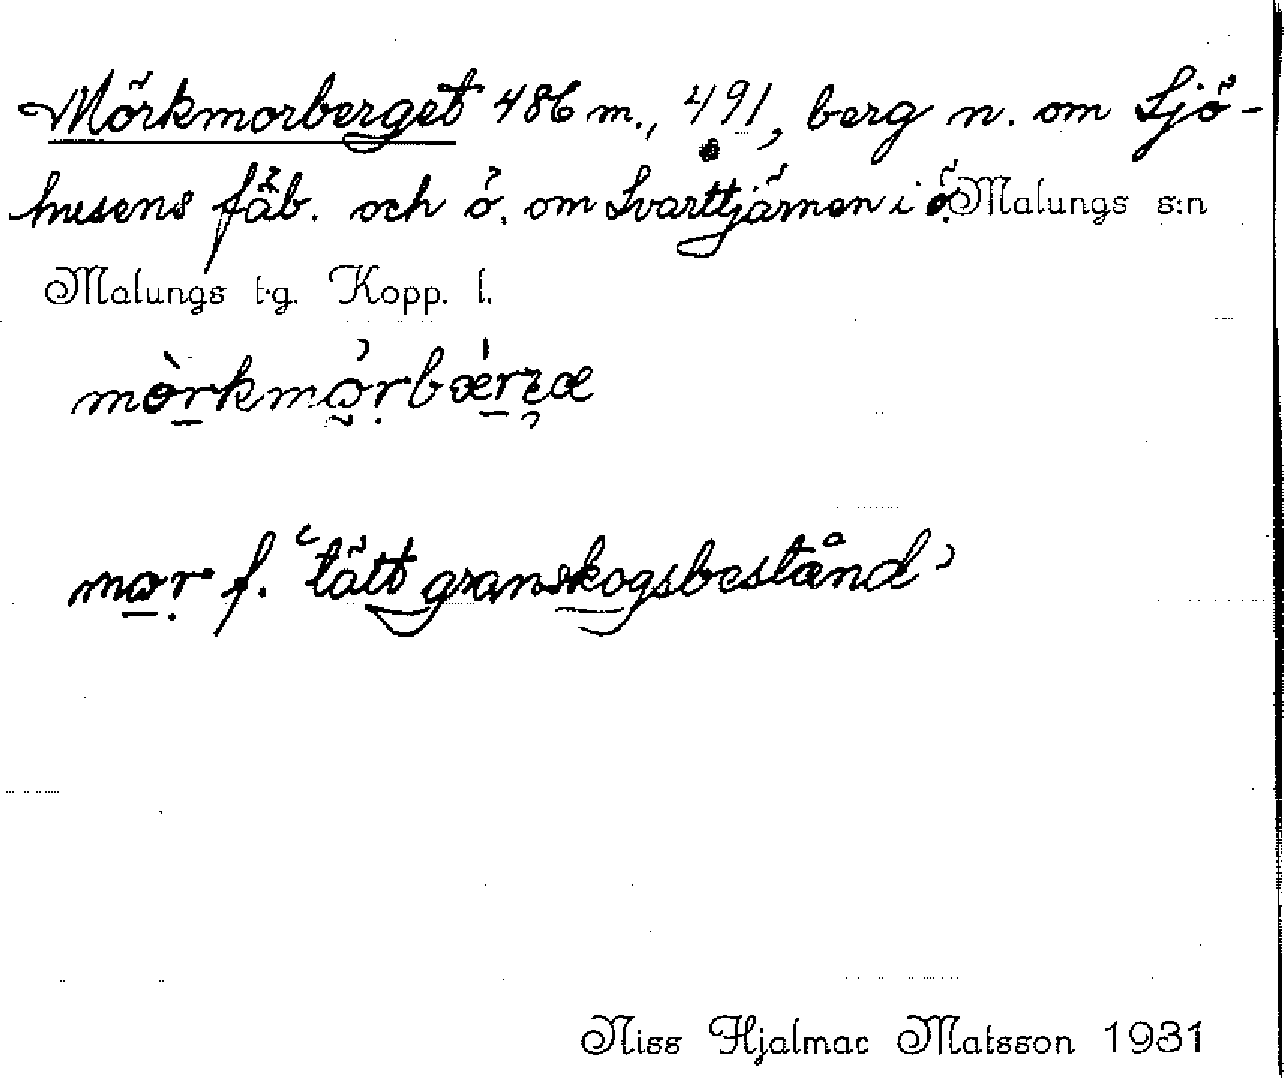 Mörkmorberget 486 m., 491, berg n. om Sjö-
husens fäb. och ö. om Svarttjärnen i ö. Malungs s:n
Malungs t·g. Kopp. l.
mor f. 'tätt granskogsbestånd'
Niss Hjalmar Matsson 1931